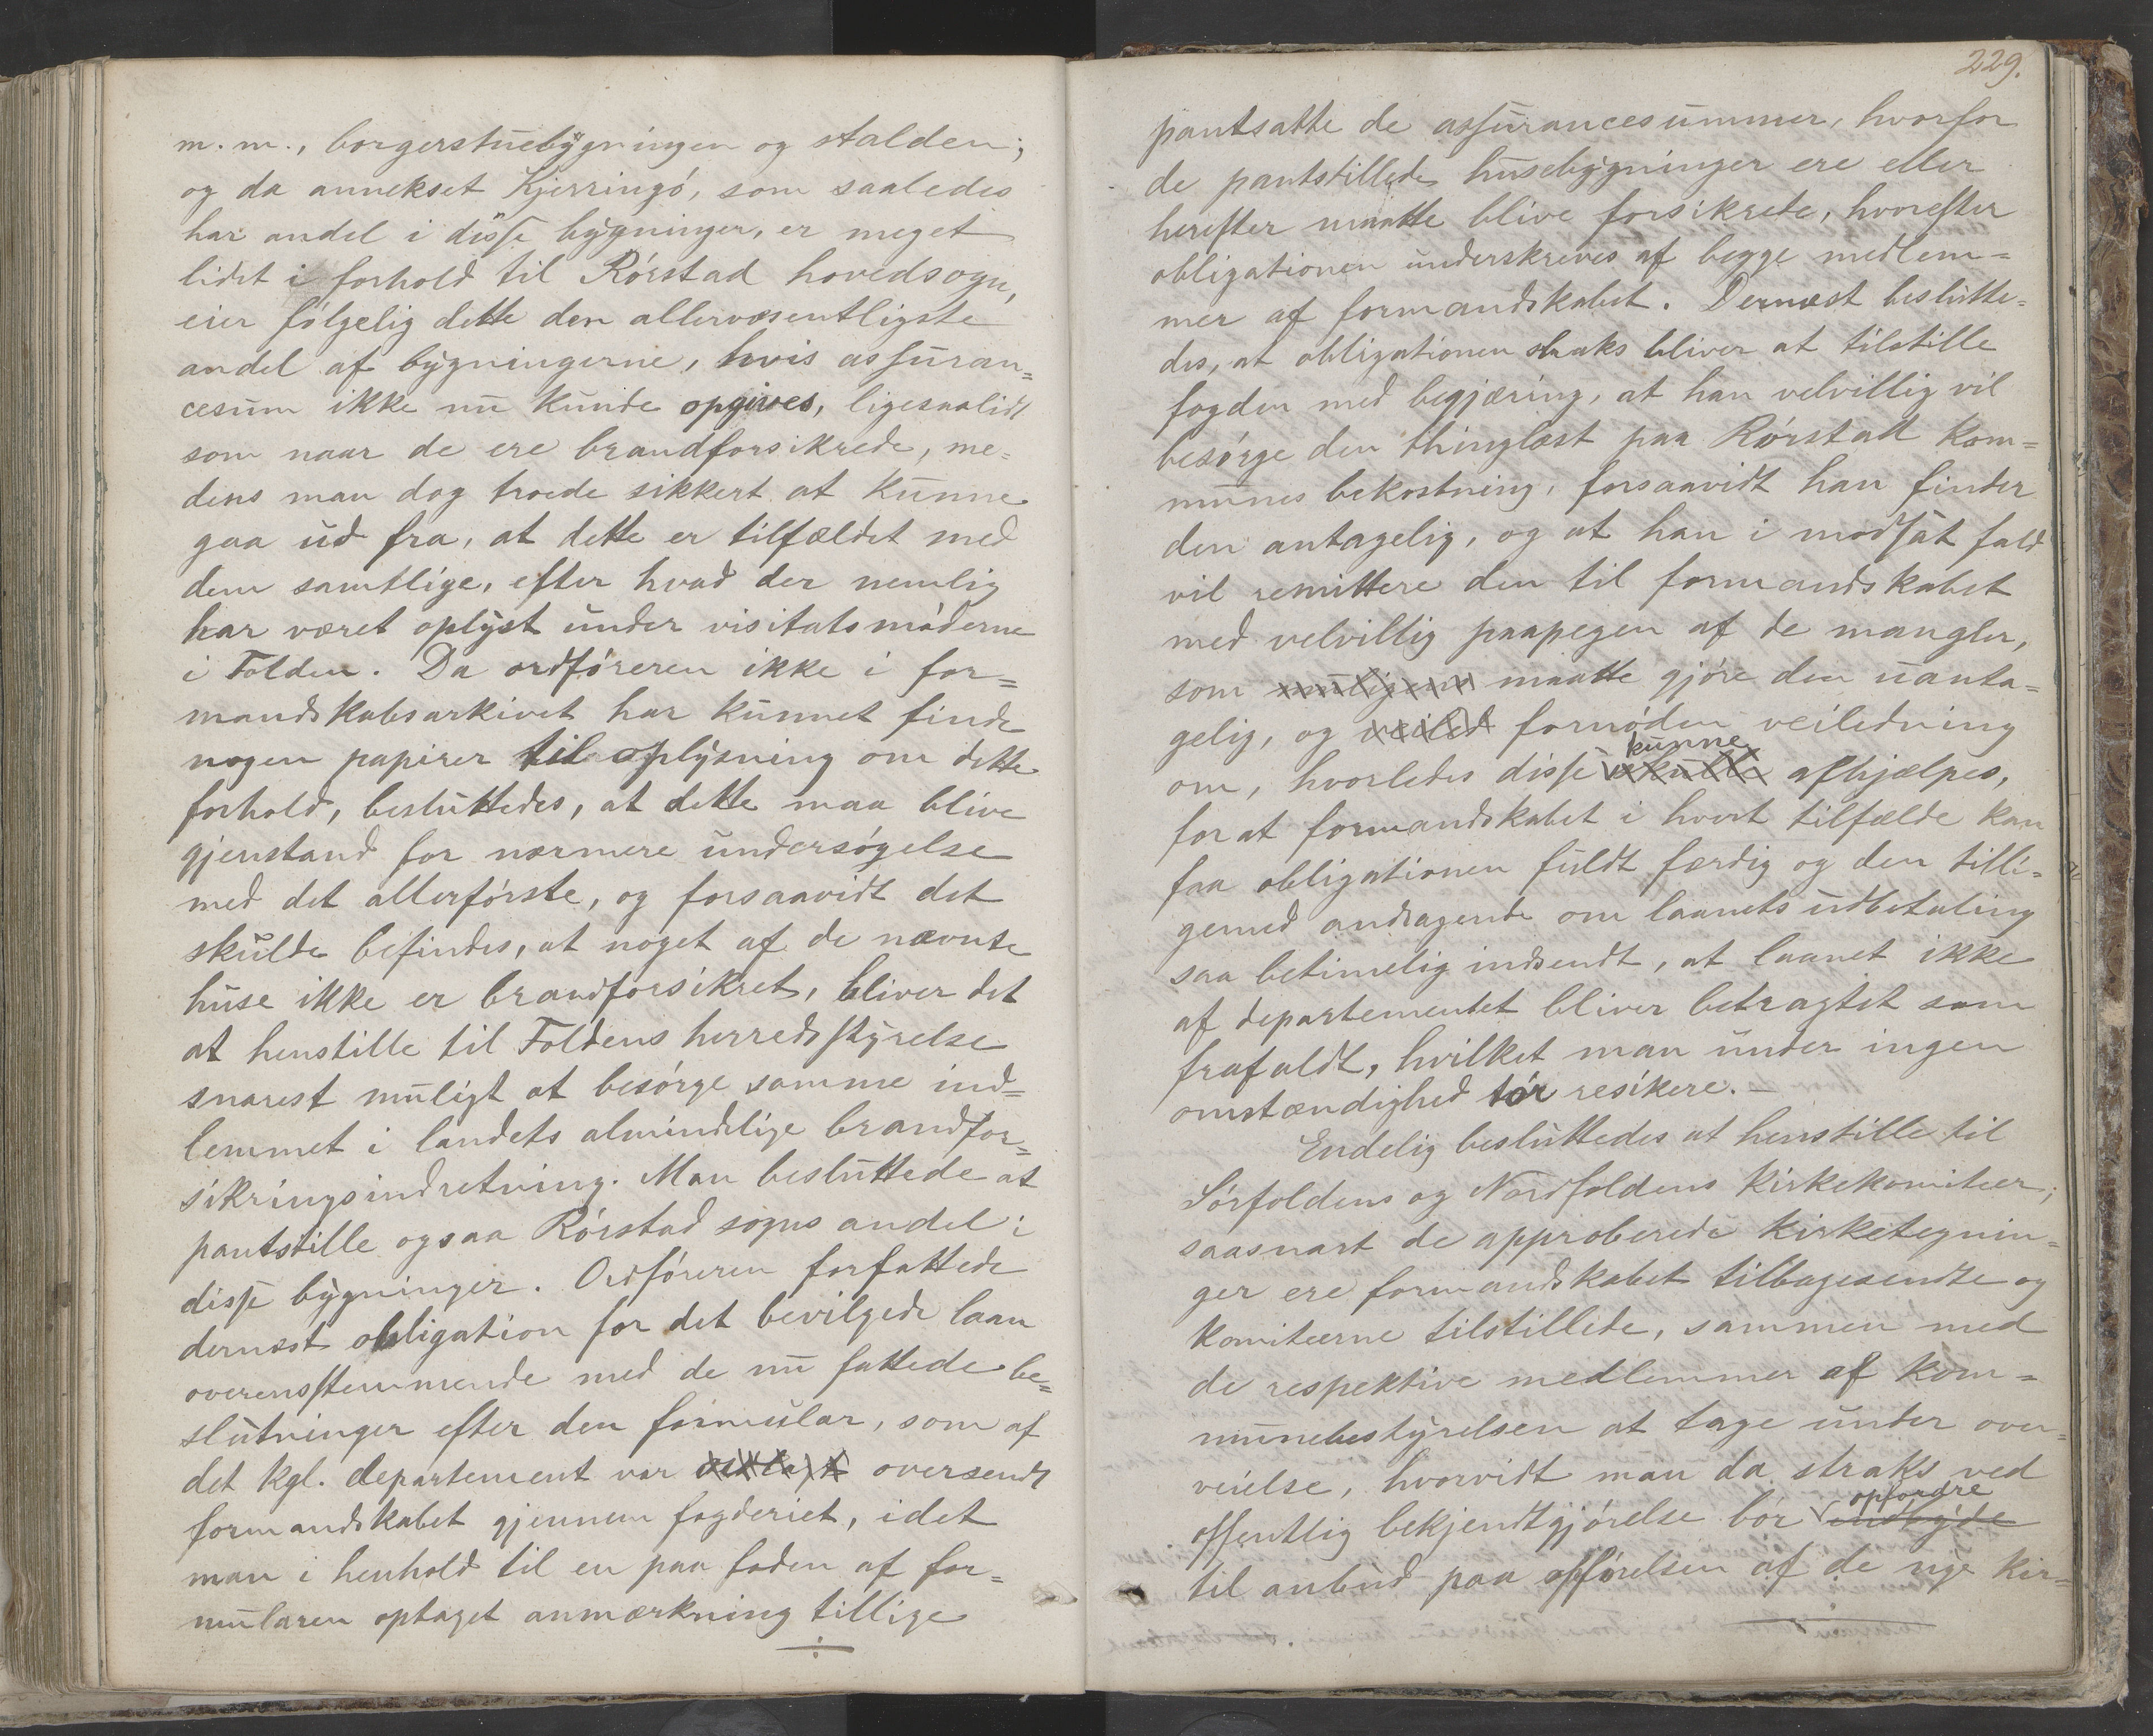 m.m., borgerstuebygningen og stalden;
og da annekset Kjerringó, som saaledes
har andel i disse bygninger, er meget
lidet i forhold til Rórstad hovedsogn,
eier fólgelig dette den allervæsentligste
andel af bygningerne, hvis assuran=
cesum ikke nu kunde opgives, ligesaalidt
som naar de ere brandforsikrede, me=
dens man dog troede sikkert at kunne
gaa ud fra, at dette er tilfældet med
dem samtlige, efter hvad der nemlig
har været oplyst under visitatsmóderne
i Folden. Da ordfóreren ikke i for=
mandskabsarkivet har kunnet finde
nogen papirer til oplysning om dette
forhold, besluttedes, at dette maa blive
gjenstand for nærmere undersógelse
med det allerfórste, og forsaavidt det
skulde befindes, at noget af de nævnte
huse ikke er brandforsikret, bliver det
at henstille til Foldens herredsstyrelse
snarest muligt at besórge samme ind=
lemmet i landets almindelige brandfor=
sikringsindretning. Man besluttede at
pantstille ogsaa Rórstad sogns andel i
disse bygninger. Ordfóreren forfattede
dernæst obligation for det bevilgede laan
overensstemmende med de nu fattede be=
slutninger efter den formular, som af
det kgl. departement var oversendt
formandskabet gjennem fogderiet, idet
man i henhold til en paa foden af for=
mularen optaget anmærkning tillige
229.
pantsatte de assurancesummer, hvorfor
de pantstillede husebygninger ere eller
herefter maatte blive forsikrede, hvorefter
obligationen underskreves af begge medlem=
mer af formandskabet. Dernæst beslutte=
des, at obligationen straks bliver at tilstille
fogden med begjæring, at han velvillig vil
besórge den thinglæst paa Rórstad kom=
munes bekostning, forsaavidt han finder
den antagelig, og at han i modsat fald
vil remittere den til formandskabet
med velvillig paapegen af de mangler,
som muligens maatte gjóre den uanta=
gelig, og veiled fornóden veiledning
om, hvorledes disse skulle kunne afhjælpes,
for at formandskabet i hvert tilfælde kan
faa obligationen fuldt færdig og den tilli=
gemed andragende om laanets udbetaling
saa betimelig indsendt, at laanet ikke
af departementet bliver betragtet som
frafaldt, hvilket man under ingen
omstændighed tór resikere.–
Endelig besluttedes at henstille til
Sórfoldens og Nordfoldens kirkekomiteer,
saasnart de approberede kirketegnin=
ger ere formandskabet tilbagesendte og
komiteerne tilstillede, sammen med
de respektive medlemmer af kom=
munebestyrelsen at tage under over=
veielse, hvorvidt man da straks ved
offentlig bekjendtgjórelse bór indbyde opfordre
til anbud paa opfórelsen af de nye kir=